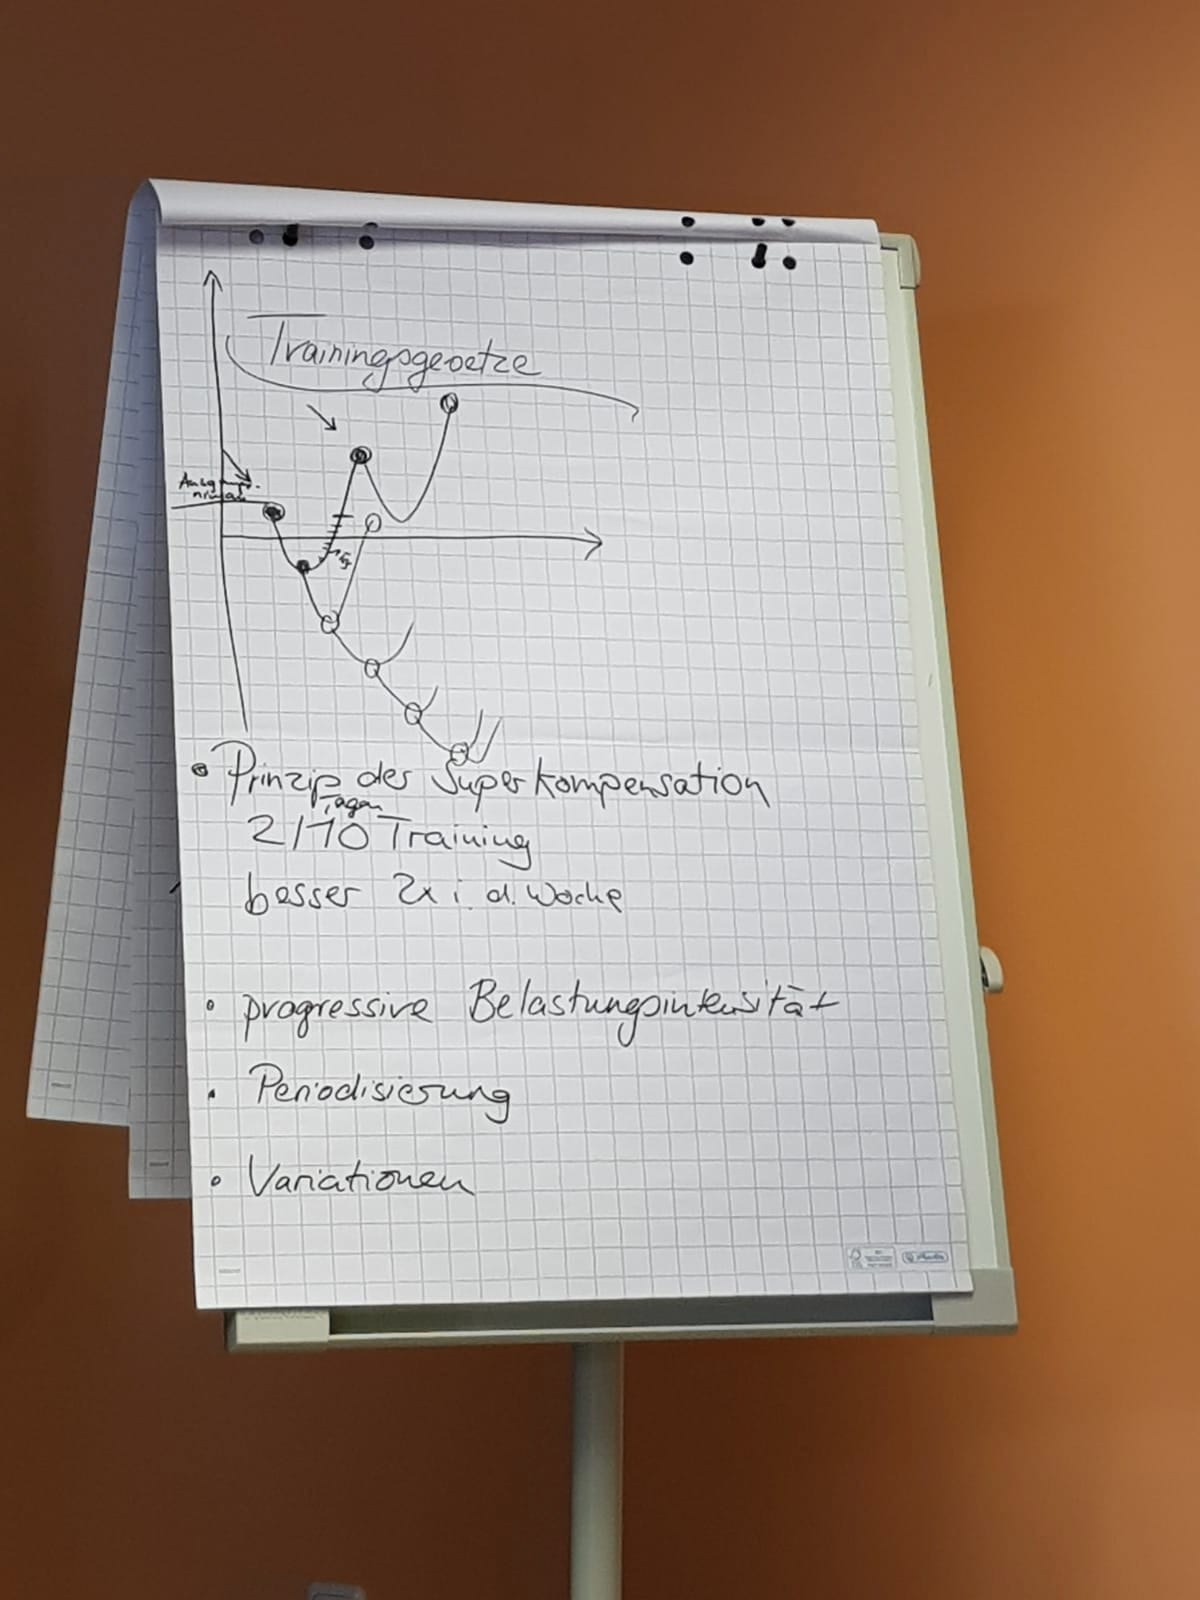 Trainingsgesetze
Ausgangs-
niveau
• Prinzip der Superkompensation
Tagen
2/10 Training
besser 2x i. d. Woche
• progressive Belastungsintensität
• Periodisierung
• Variationen